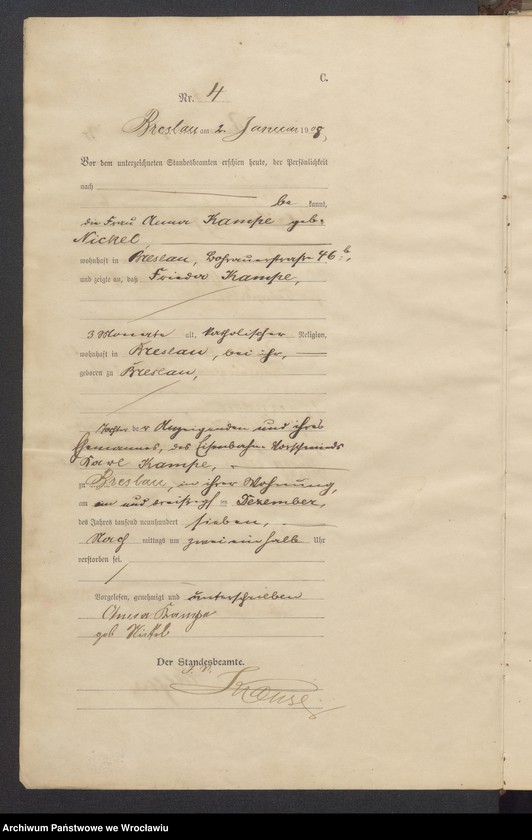 C.
Nr. 4
Breslau am 2. Januar 1908,
Vor dem unterzeichneten Standesbeamten erschien heute, der Persönlichkeit
nach
be kannt,
die Frau Anna Kampe geb.
Nickel
wohnhaft in Breslau, Lohrauerstraße 46 b,
und zeigte an, daß Frieda Kampe,
3 Monate alt, katholischer Religion,
wohnhaft in Breslau, bei ihr,
geboren zu Breslau,
Tochter der Anzeigenden und ihres
Ehemannes, des Eisenbahn-
Karl Kampe,
zu Breslau, in ihrer Wohnung,
am ein und dreißigsten Dezember,
des Jahres tausend neunhundert sieben,
Nach mittags um zweieinhalb Uhr
verstorben sei.
Vorgelesen, genehmigt und unterschrieben
Anna Kampe
geb Nickel
Der Standesbeamte.
Krause
Archiwum Państwowe we Wrocławiu